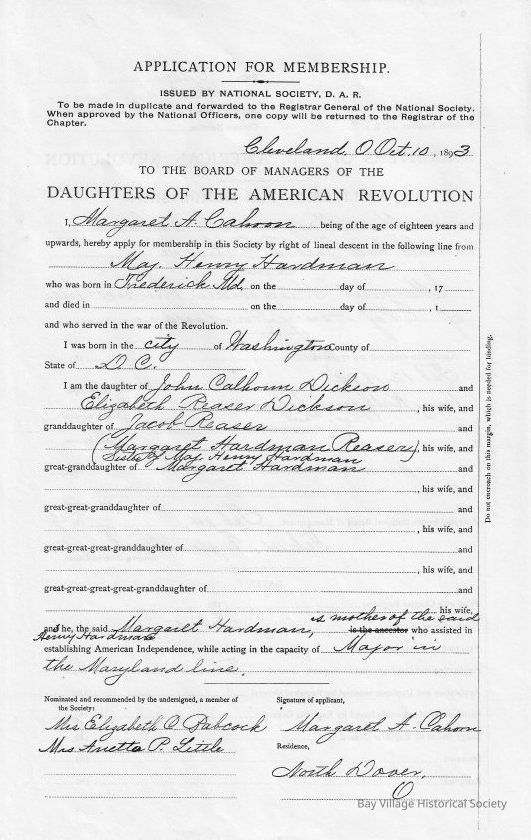 APPLICATION FOR MEMBERSHIP.
ISSUED BY NATIONAL SOCIETY, D. A. R.
To be made in duplicate and forwarded to the Registrar General of the National Society.
When approved by the National Officers, one copy will be returned to the Registrar of the
Chapter.
Cleveland, O Oct. 10, 1893
TO THE BOARD OF MANAGERS OF THE
DAUGHTERS OF THE AMERICAN REVOLUTION
I, Margaret A. Cahoon being of the age of eighteen years and
upwards, hereby apply for membership in this Society by right of lineal descent in the following line from
Maj. Henry Hardman
who was born in Frederick Md. on the day of , 17
and died in on the day of , 1
and who served in the war of the Revolution.
I was born in the city of Washington County of
State of D. C.
I am the daughter of John Calhoun Dickson and
Elizabeth Reaser Dickson , his wife, and
granddaughter of Jacob Reaser and
(Margaret Hardman Reaser) , his wife, and
Sister of Maj. Henry Hardman
great-granddaughter of Margaret Hardman and
, his wife, and
great-great-granddaughter of and
, his wife, and
great-great-great-granddaughter of and
, his wife, and
great-great-great-great-granddaughter of and
his wife,
is mother of the said
and he, the said Margaret Hardman, is the ancestor who assisted in
Henry Hardman
establishing American Independence, while acting in the capacity of Major in
the Maryland line.
Nominated and recommended by the undersigned, a member of
the Society:
Mrs Elizabeth C Babcock
Mrs Anetta P. Little
Signature of applicant,
Margaret A. Cahoon
Residence,
North Dover,
O
Do not encroach on this margin, which is needed for binding.
Bay Village Historical Society